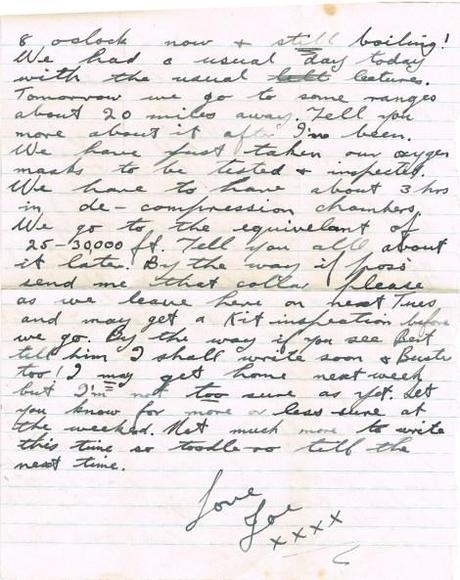 8 oslock now & still boiling!
We had a usual day today
with the usual lectures.
Tomorrow we go to some ranges
about 20 miles away. Tell you
more about it after I'm been.
We have just taken our oxygen
masks to be tested & inspected.
We have to have about 3 hrs
in de-compression chambers.
We go to the equivelant of
25-30,000 ft. Tell you all about
it later. By the way if poss
send me that collar please
as we leave here on next Tues
and may get a Kit inspection before
we go. By the way if you see
tell him I shall write soon &
too! I may get home next week
but I'm not too sure as yet. Let
you know for more or less sure at
the weekend. Not much more to write
this time so toodle-oo tell the
next time.
Love
Joe
xxxx